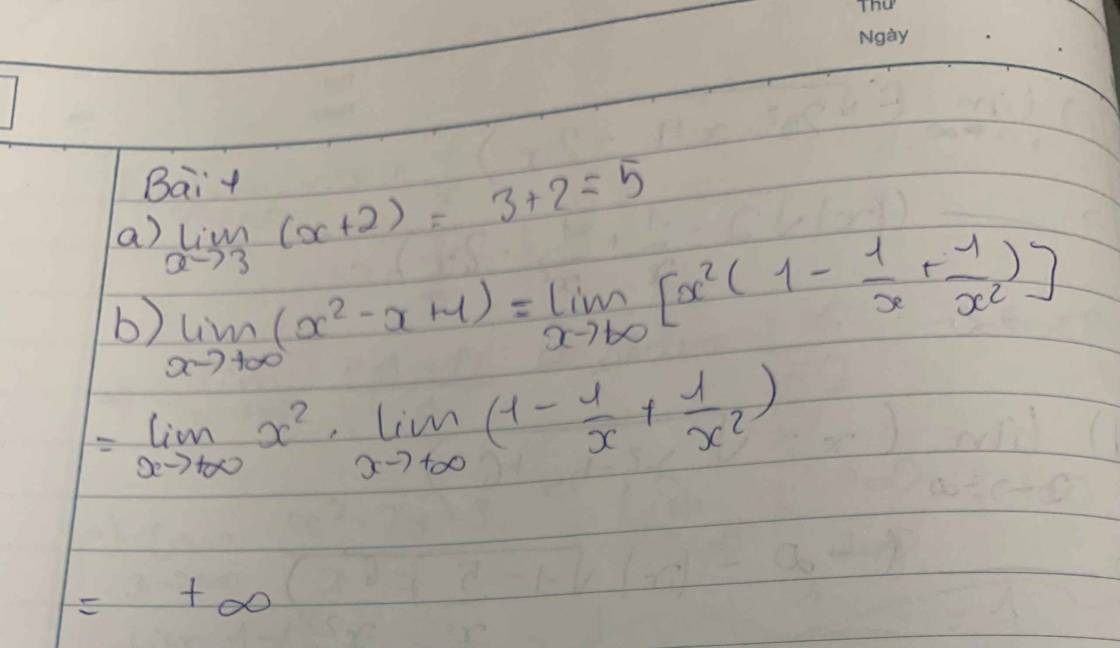 Thứ
Ngày
Bài 1
a) lim x→3 (x+2) = 3+2 = 5
b) lim x→+∞ (x² - x + 1) = lim x→+∞ [x² (1 - 1/x + 1/x²)]
= lim x→+∞ x² . lim x→+∞ (1 - 1/x + 1/x²)
= +∞